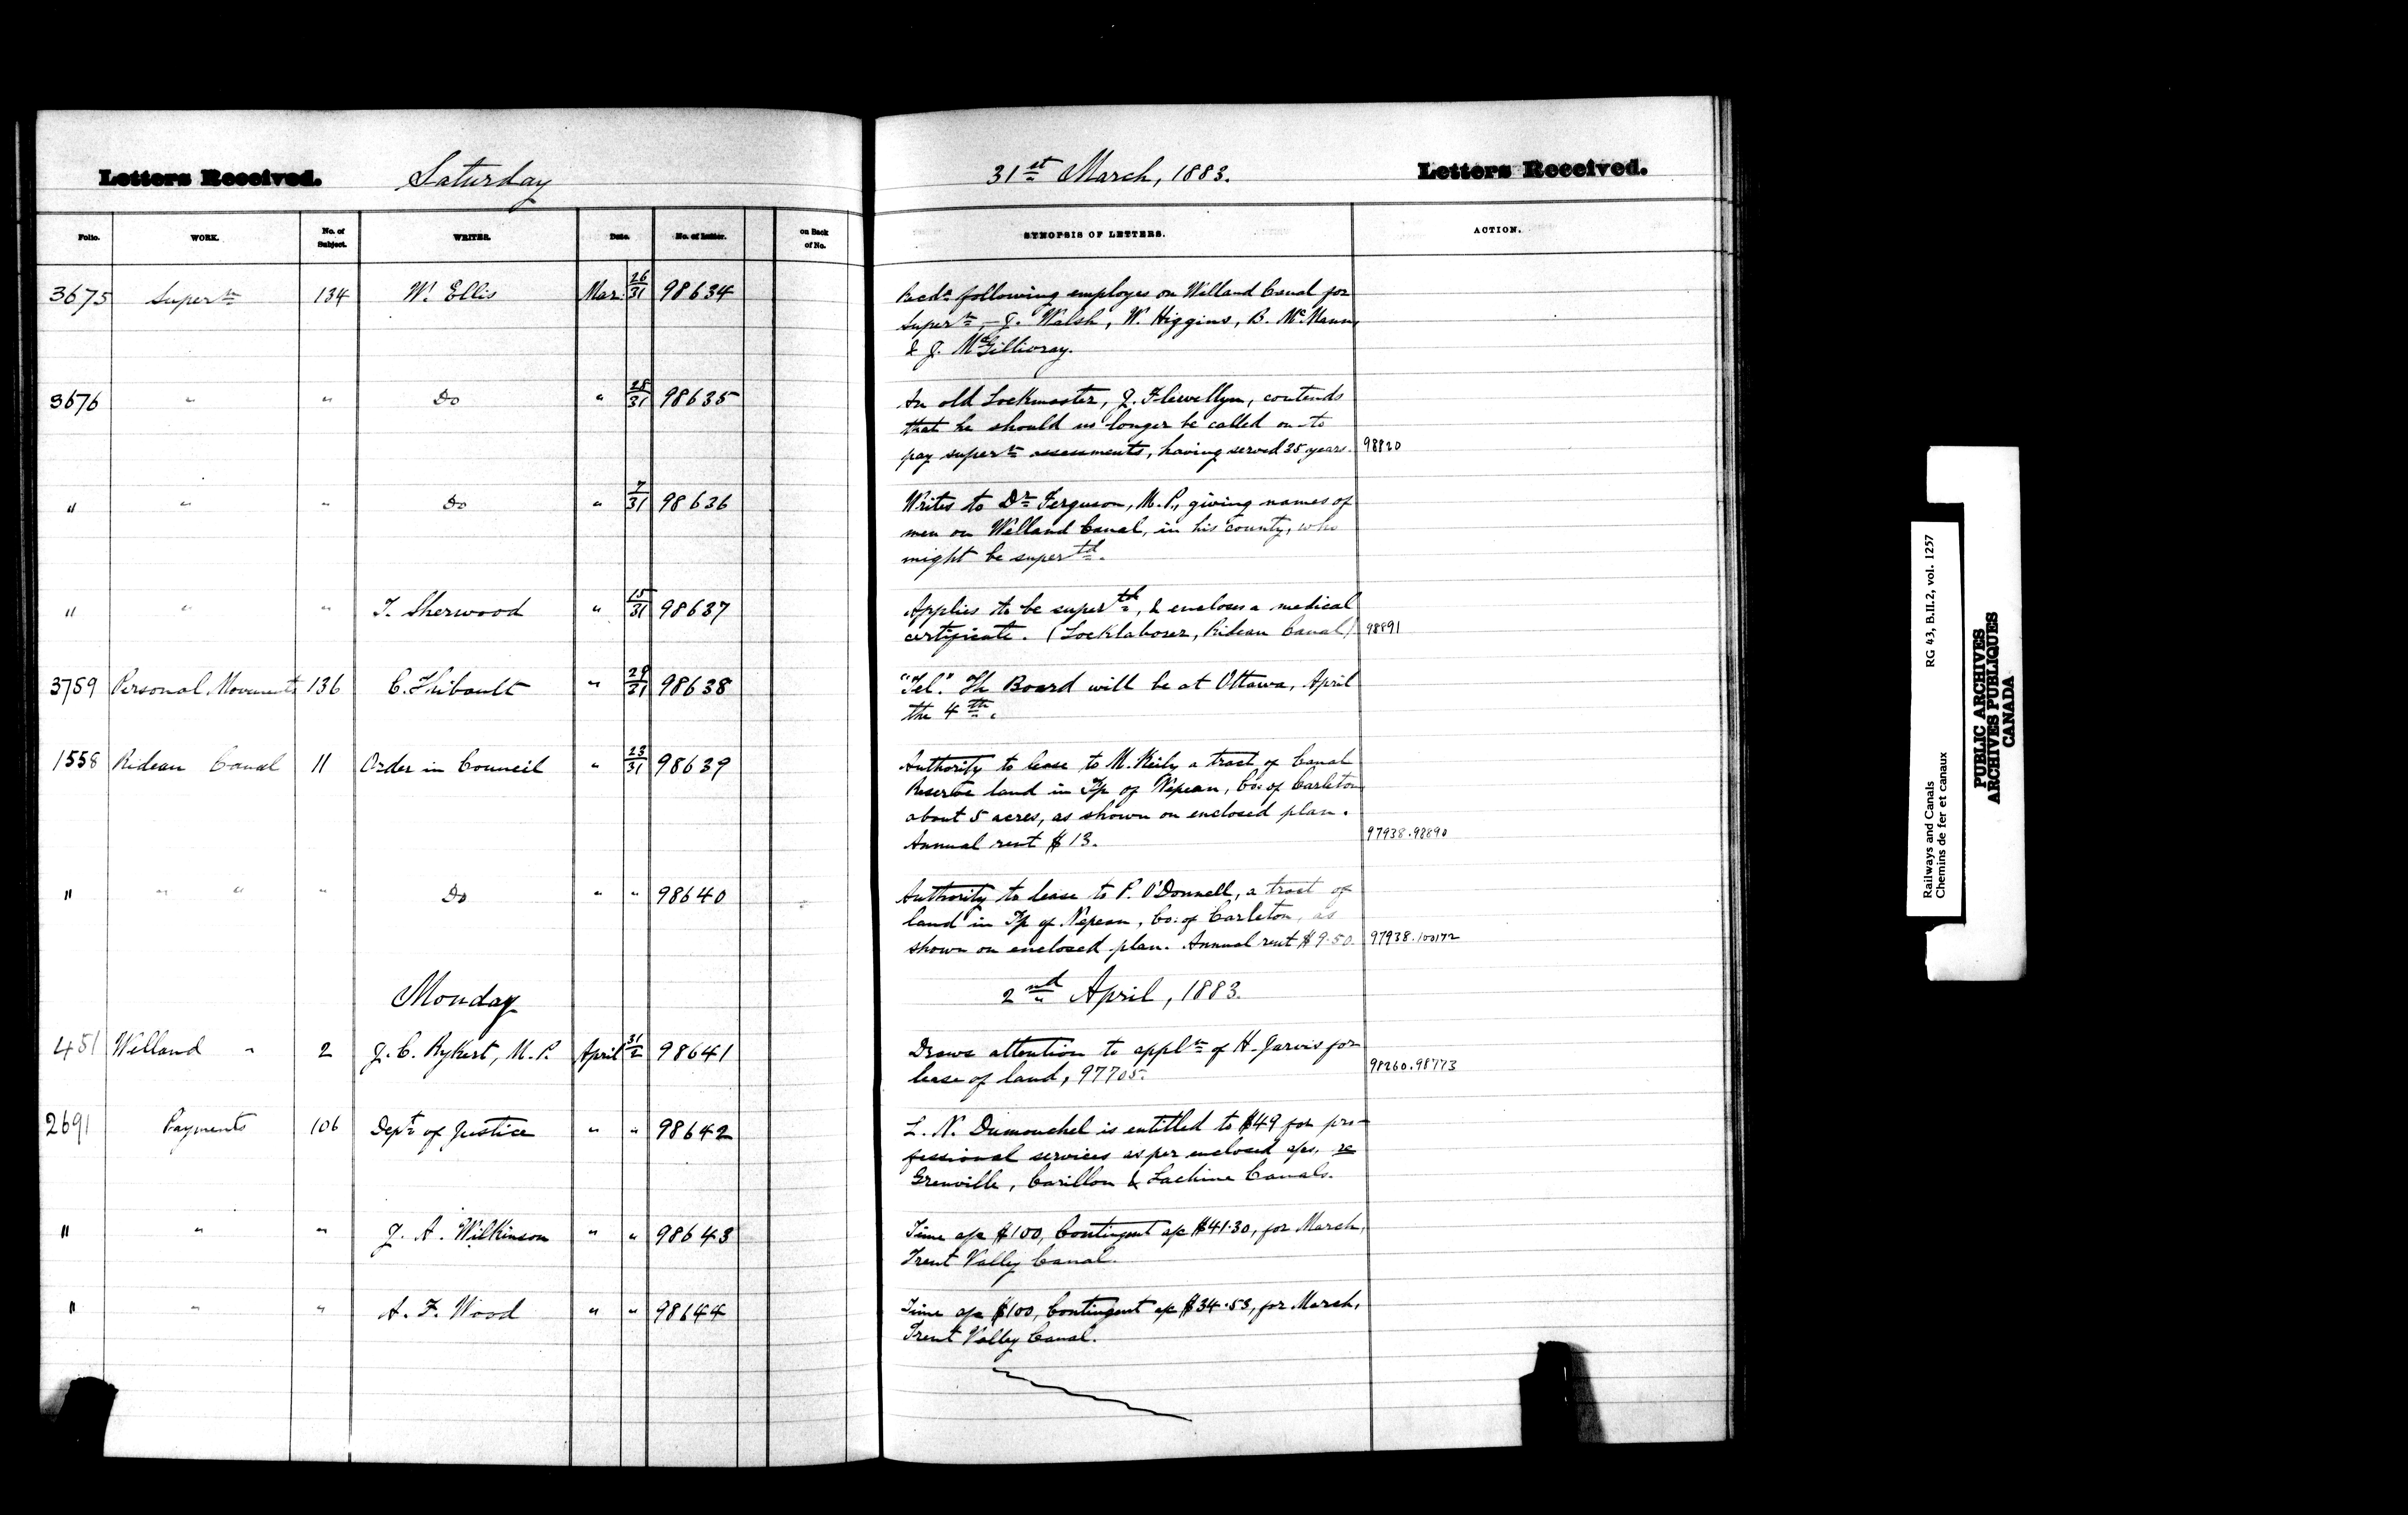 Letters Received. Saturday 31st March, 1883. Letters Received.
Folio. WORK. No. of Subject. WRITER. Date. No. of Letter. on Back of No. SYNOPSIS OF LETTERS. ACTION.
3675 Supertn 134 W. Ellis Mar. 26/31 98634 Recds following employes on Welland Canal for
Supertn, – J. Walsh, W. Higgins, B. McMann,
& J. McGillivray.
3676 " " Do " 28/31 98635 An old Lockmaster, J. Flewellyn, contends
that he should no longer be called on to
pay supertn assessments, having served 35 years. 98820
" " " Do " 7/31 98636 Writes to Dr Ferguson, M.P., giving names of
men on Welland Canal, in his county, who
might be supertd.
" " " T. Sherwood " 15/31 98637 Applies to be supertd, & encloses a medical
certificate. (Locklaborer, Rideau Canal) 98891
3759 Personal Movements 136 C. Thibault " 29/31 98638 "Tel." The Board will be at Ottawa, April
the 4th.
1558 Rideau Canal 11 Order in Council " 23/31 98639 Authority to lease to M. Keily a tract of Canal
Reserve land in Tp of Nepean, Co: of Carleton
about 5 acres, as shown on enclosed plan.
Annual rent $13. 97938.98890
" " " " Do " " 98640 Authority to lease to P. O'Donnell, a tract of
land in Tp of Nepean, Co: of Carleton, as
shown on enclosed plan. Annual rent $9.50. 97938.100172
Monday 2nd April, 1883.
451 Welland " 2 J. C. Rykert, M.P. April 31/2 98641 Draws attention to appln of H. Jarvis for
lease of land, 97705. 98260.98773
2691 Payments 106 Dept of Justice " " 98642 L. N. Dumouchel is entitled to $49 for pro-
fessional services as per enclosed a/cs. re
Grenville, Carillon & Lachine Canals.
" " " J. A. Wilkinson " " 98643 Time a/c $100, Contingent a/c $41.30, for March,
Trent Valley Canal.
" " " A. F. Wood " " 98644 Time a/c $100, Contingent a/c $34.53, for March,
Trent Valley Canal.
Railways and Canals RG 43, B.II.2, vol. 1257
Chemins de fer et canaux
PUBLIC ARCHIVES
ARCHIVES PUBLIQUES
CANADA